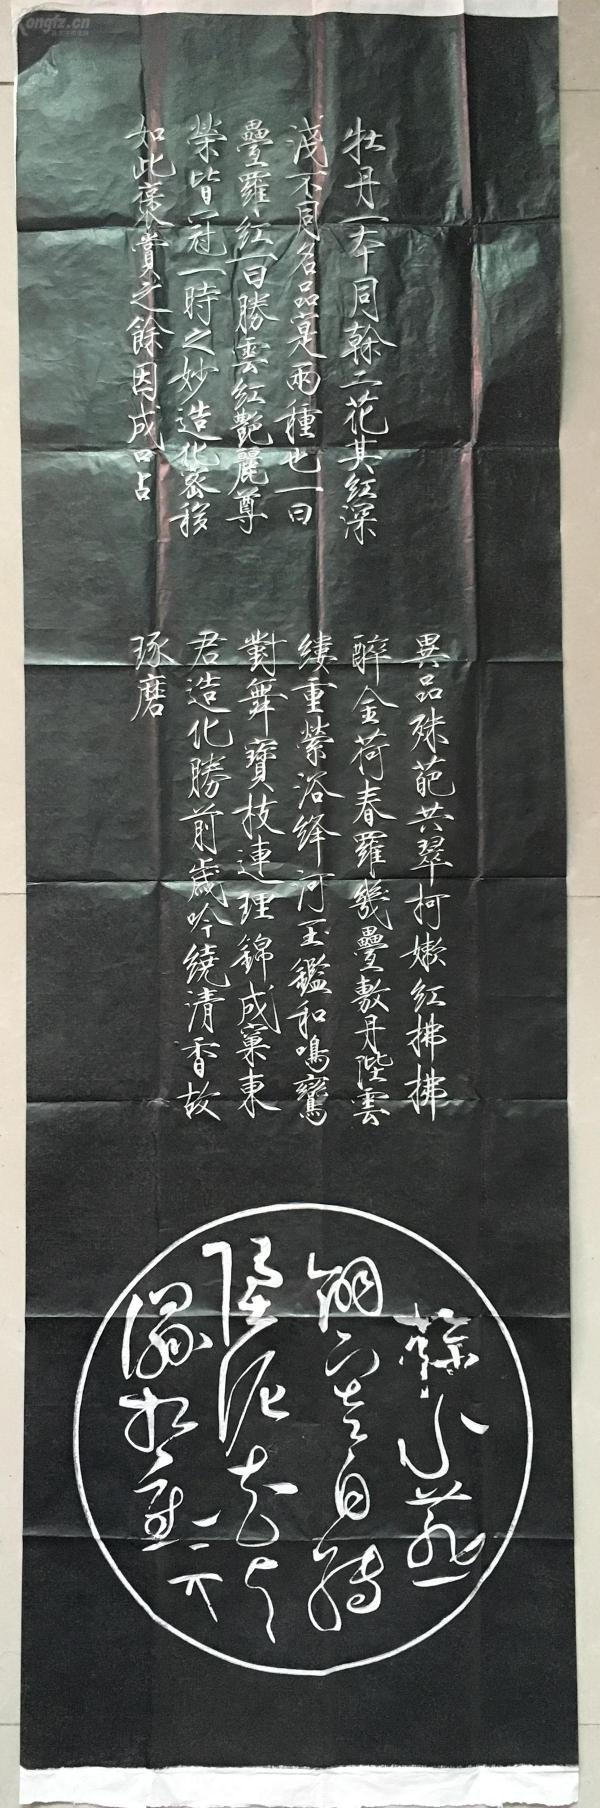 牡丹一本同榦二花其紅深
淺不同名品寔兩種也一曰
疊羅紅一曰勝雲紅艷麗尊
榮皆冠一時之妙造化密移
如此褒賞之餘因成口占
異品殊葩共翠柯嫩紅拂拂
醉金荷春羅幾疊敷丹陛雲
縷重縈浴絳河玉鑑和鳴鸞
對舞寶枝連理錦成窠東
君造化勝前歲吟繞清香故
琢磨
掠水燕
翎寒自轉
墮泥花片
濕相重